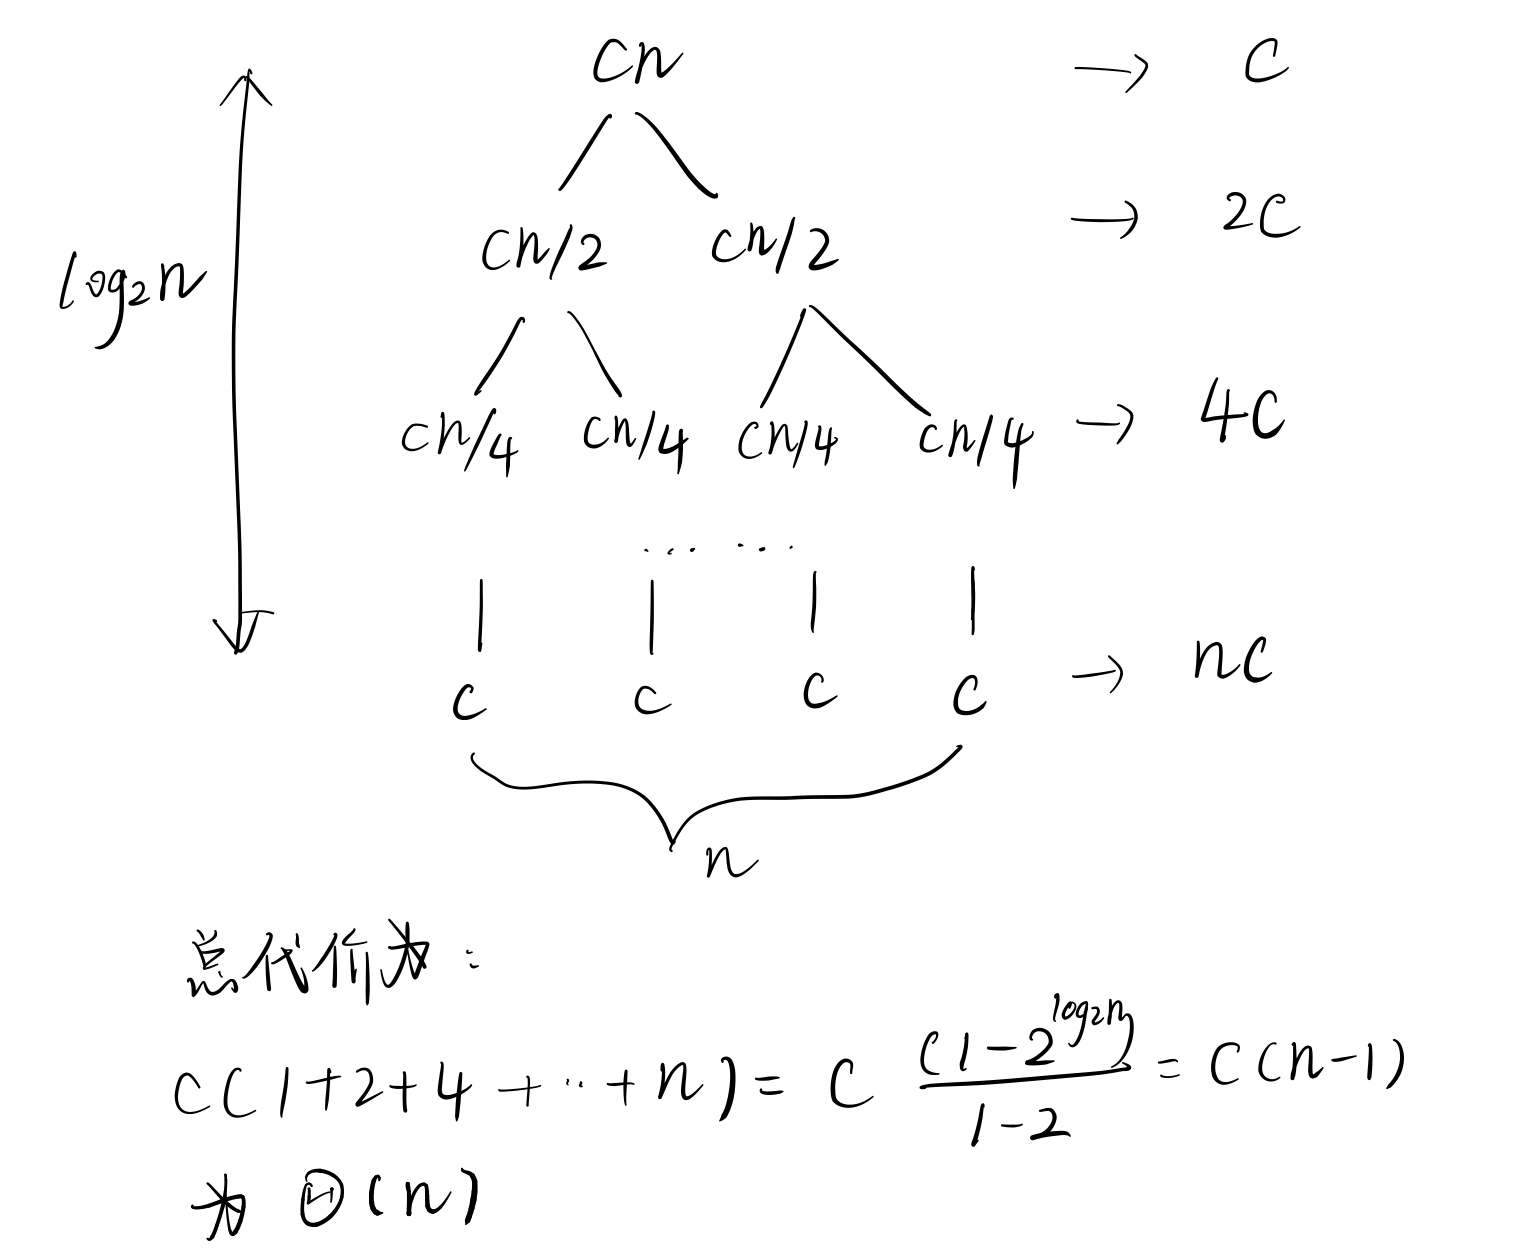 cn → c
cn/2 cn/2 → 2c
log₂n
cn/4 cn/4 cn/4 cn/4 → 4c
... ...
c c c c → nc
n
总代价为：
c(1+2+4+...+n) = c (1-2^{log₂n})/(1-2) = c(n-1)
为 Θ(n)